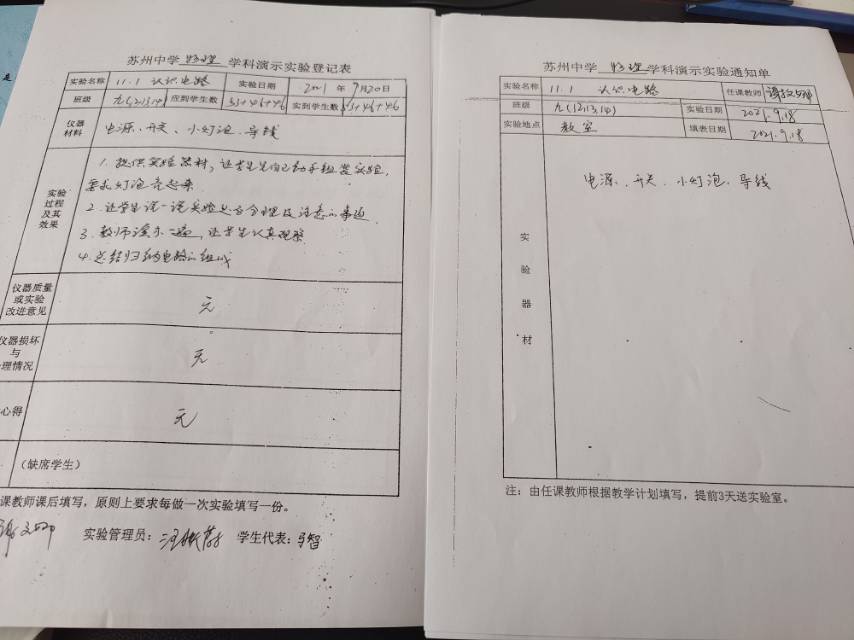 苏州中学 物理 学科演示实验登记表
实验名称 11.1 认识电路 实验日期 2021 年 9月20日
班级 九(12,13,14) 应到学生数 53+46+46 实到学生数 53+46+46
仪器材料 电源、开关、小灯泡、导线
实验过程及其效果
1. 提供实验器材，让学生自己动手组装实验，
要求灯泡亮起来
2. 让学生说一说实验是否合理及注意事项
3. 教师演示一遍，让学生认真观察
4. 总结归纳电路的组成
仪器质量或实验改进意见 无
仪器损坏与 理情况 无
心得 无
(缺席学生)
课教师课后填写，原则上要求每做一次实验填写一份。
实验管理员： 学生代表：马智
苏州中学 物理 学科演示实验通知单
实验名称 11.1 认识电路 任课教师
班级 九(12,13,14) 实验日期 2021.9.18
实验地点 教室 填表日期 2021.9.18
实验器材
电源、开关、小灯泡、导线
注：由任课教师根据教学计划填写，提前3天送实验室。